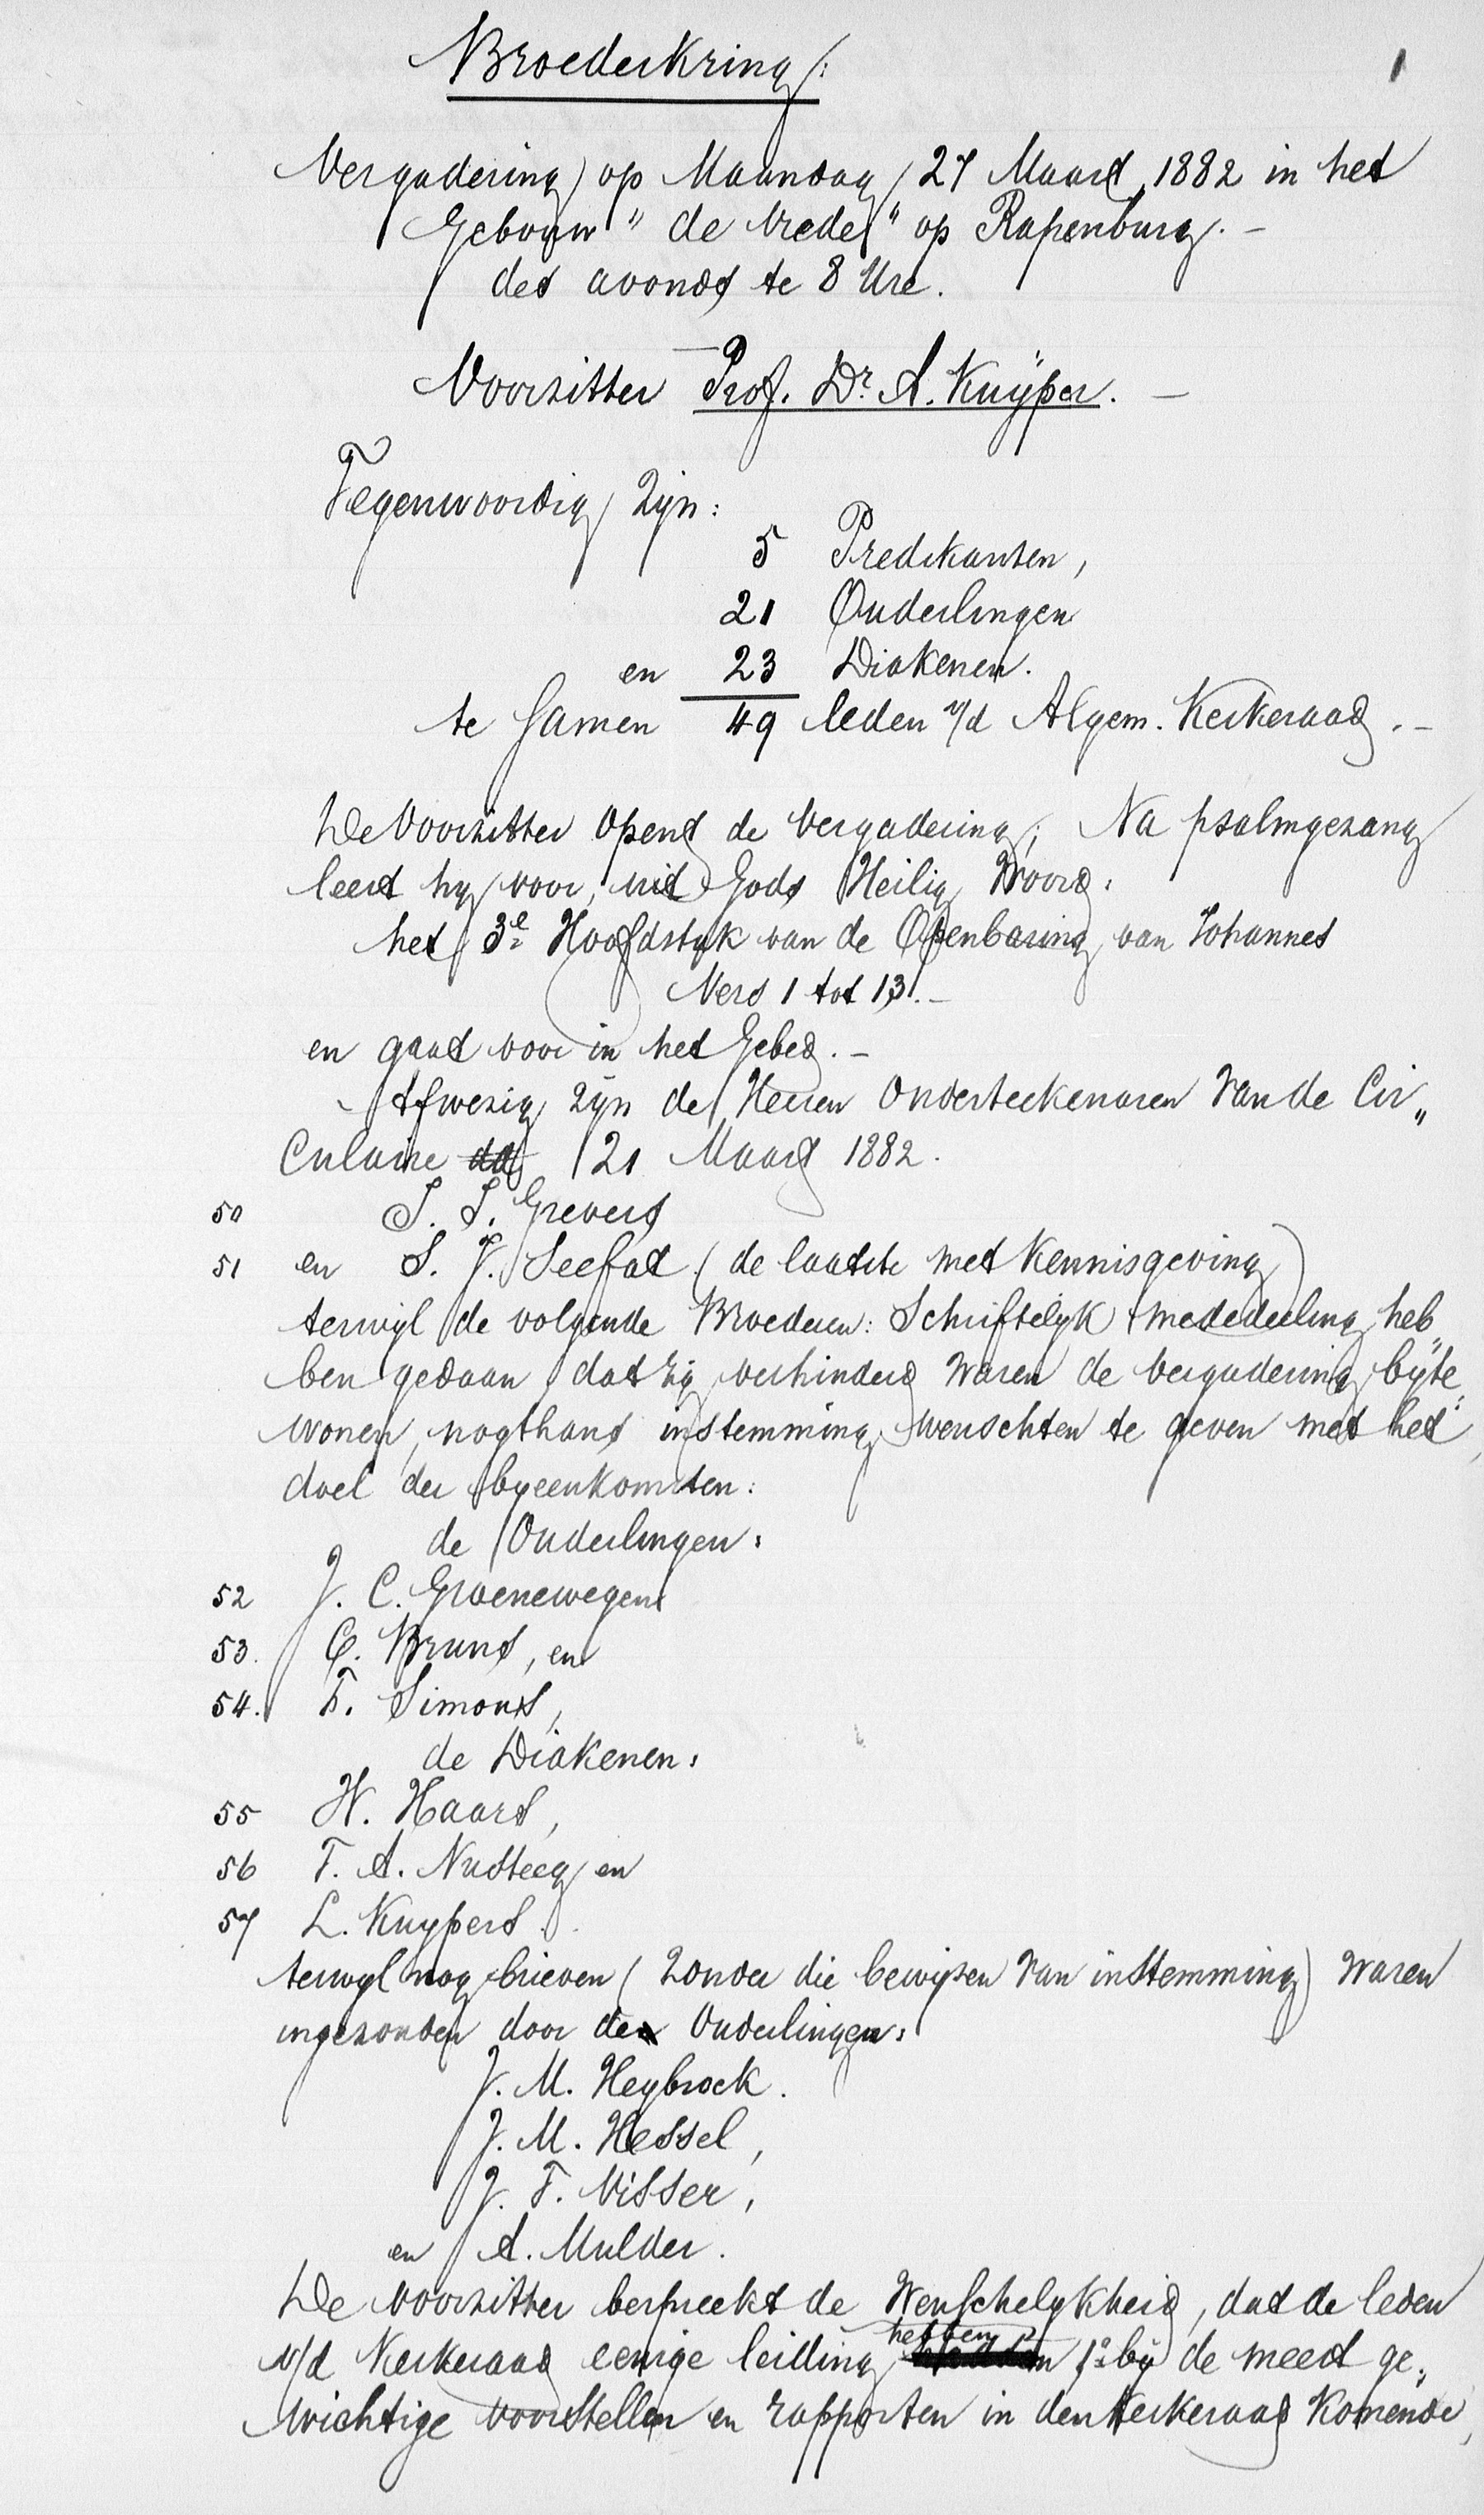 Broederkring:
1
Vergadering op Maandag 27 Maart 1882 in het
Gebouw "de Vrede" op Rapenburg. -
des avonds te 8 Ure.
Voorzitter Prof. Dr. A. Kuÿper. -
Tegenwoordig zyn:
5 Predikanten,
21 Ouderlingen
en 23 Diakenen.
te samen 49 leden v/d Algem. Kerkeraad. -
De Voorzitter opent de Vergadering; Na psalmgezang
leest hy voor, uit Gods Heilig Woord:
het 3e Hoofdstuk van de Openbaring van Johannes
Vers 1 tot 13. -
en gaat voor in het Gebed. -
Afwezig zyn de Heeren Onderteekenaren van de Cir„
culaire dd 21 Maart 1882.
50 J. J. Grevers
51 en S. J. Seefat (de laatste met Kennisgeving)
terwyl de volgende Broederen: Schriftelyk mededeeling heb„
ben gedaan dat zy verhinderd waren de Vergadering byte„
wonen, nogthans instemming wenschten te geven met het
doel der byeenkomsten:
de Ouderlingen:
52 J. C. Groenewegen
53. C. Bruns, en
54. F. Simons,
de Diakenen:
55 W. Haars,
56 F. A. Nusteeg en
57 L. Kuypers.
terwyl nog brieven (zonder die bewyzen van instemming) waren
ingezonden door de Ouderlingen:
J. M. Heybrock.
J. M. Hessel,
J. F. Visser,
en A. Mulder.
De Voorzitter bespreekt de Wenschelykheid, dat de leden
v/d Kerkeraad eenige leiding hebben 1o by de meest ge„
wichtige voorstellen en rapporten in den Kerkeraad Komende,